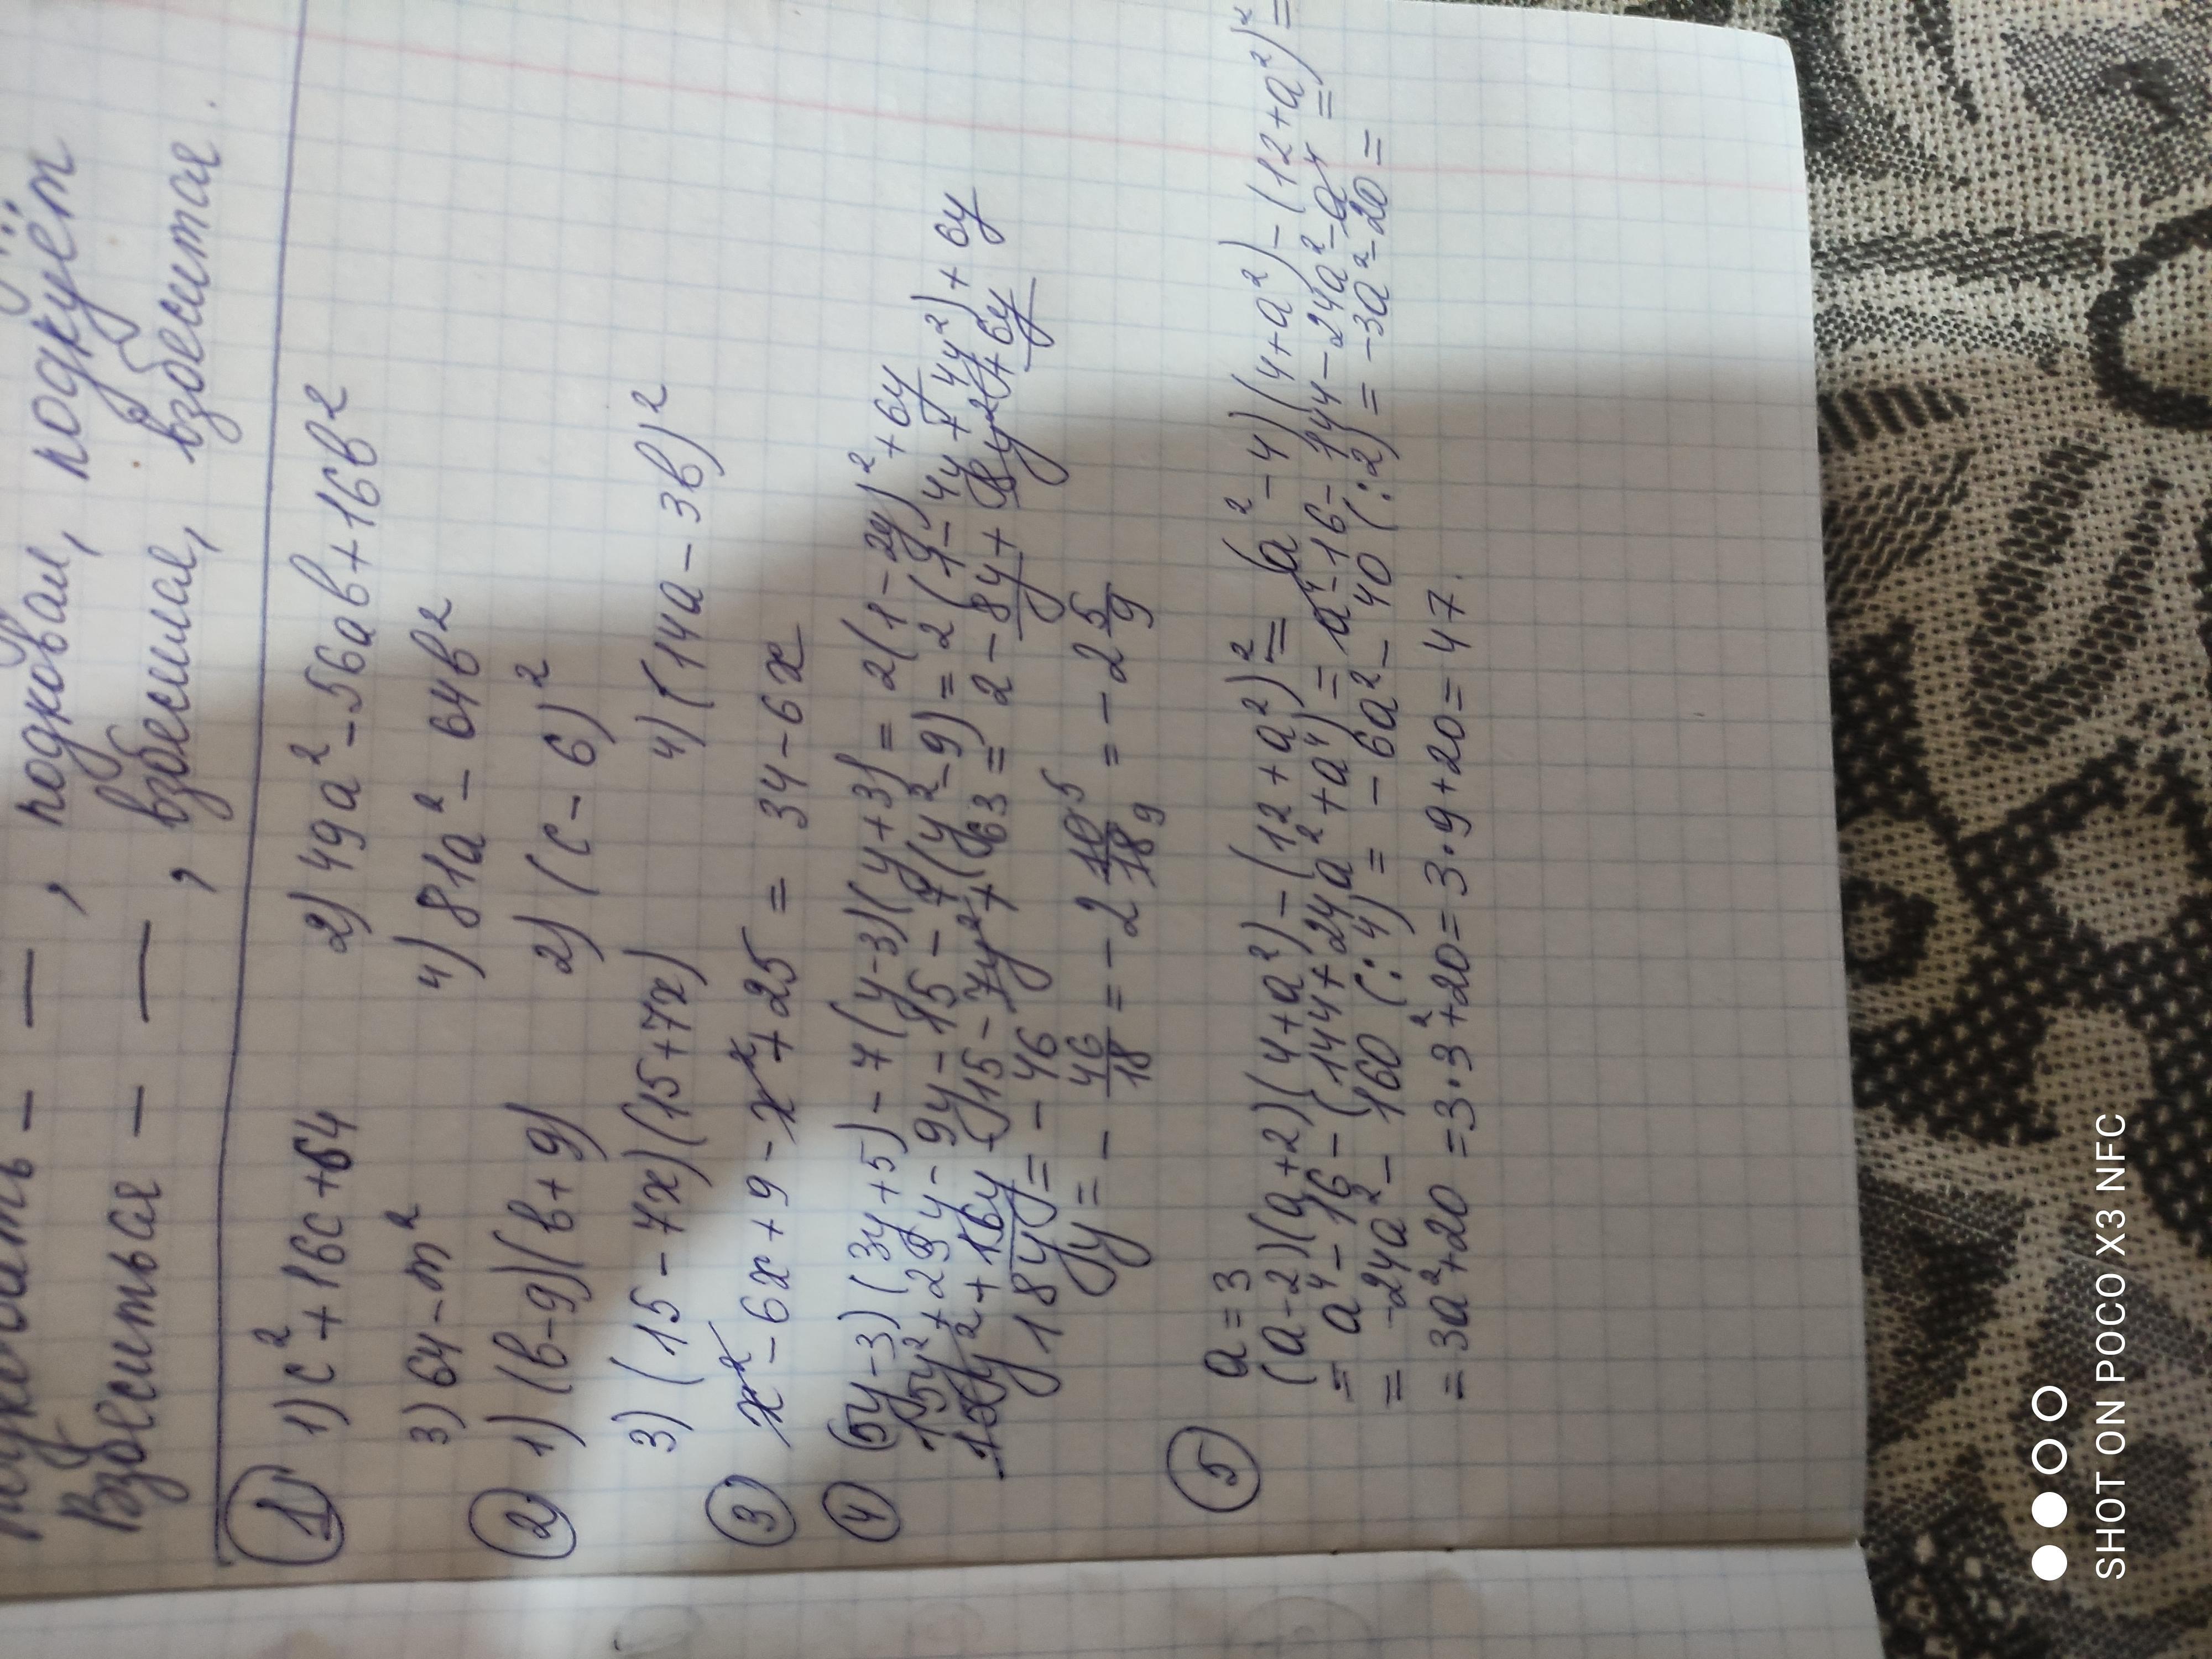 Взбеситься - —, взбесилась, взбесится.
— , подковал, подкуёт
① 1) c² + 16c + 64 2) 49a² - 56ab + 16b²
3) 64 - m² 4) 81a² - 64b²
② 1) (b - 9)(b + 9) 2) (c - 6)²
3) (15 - 7x)(15 + 7x) 4) (14a - 3b)²
③ x² - 6x + 9 - x² + 25 = 34 - 6x
④ (5y - 3)(3y + 5) - 7(y - 3)(y + 3) = 2(1 - 2y)² + 6y
15y² + 25y - 9y - 15 - 7(y² - 9) = 2(1 - 4y + 4y²) + 6y
y² + 16y - 15 - 7y² + 63 = 2 - 8y + 8y² + 6y
18y = - 46
y = - 46/18 = - 2 10/18 5 9 = - 2 5/9
⑤ a = 3
(a - 2)(a + 2)(4 + a²) - (12 + a²)² = (a² - 4)(4 + a²) - (12 + a²)² =
= a⁴ - 16 - (144 + 24a² + a⁴) = a⁴ - 16 - 144 - 24a² - a⁴ =
= -24a² - 160 (:4) = - 6a² - 40 (:2) = -3a² - 20 =
= 3a² + 20 = 3·3² + 20 = 3·9 + 20 = 47.
SHOT ON POCO X3 NFC